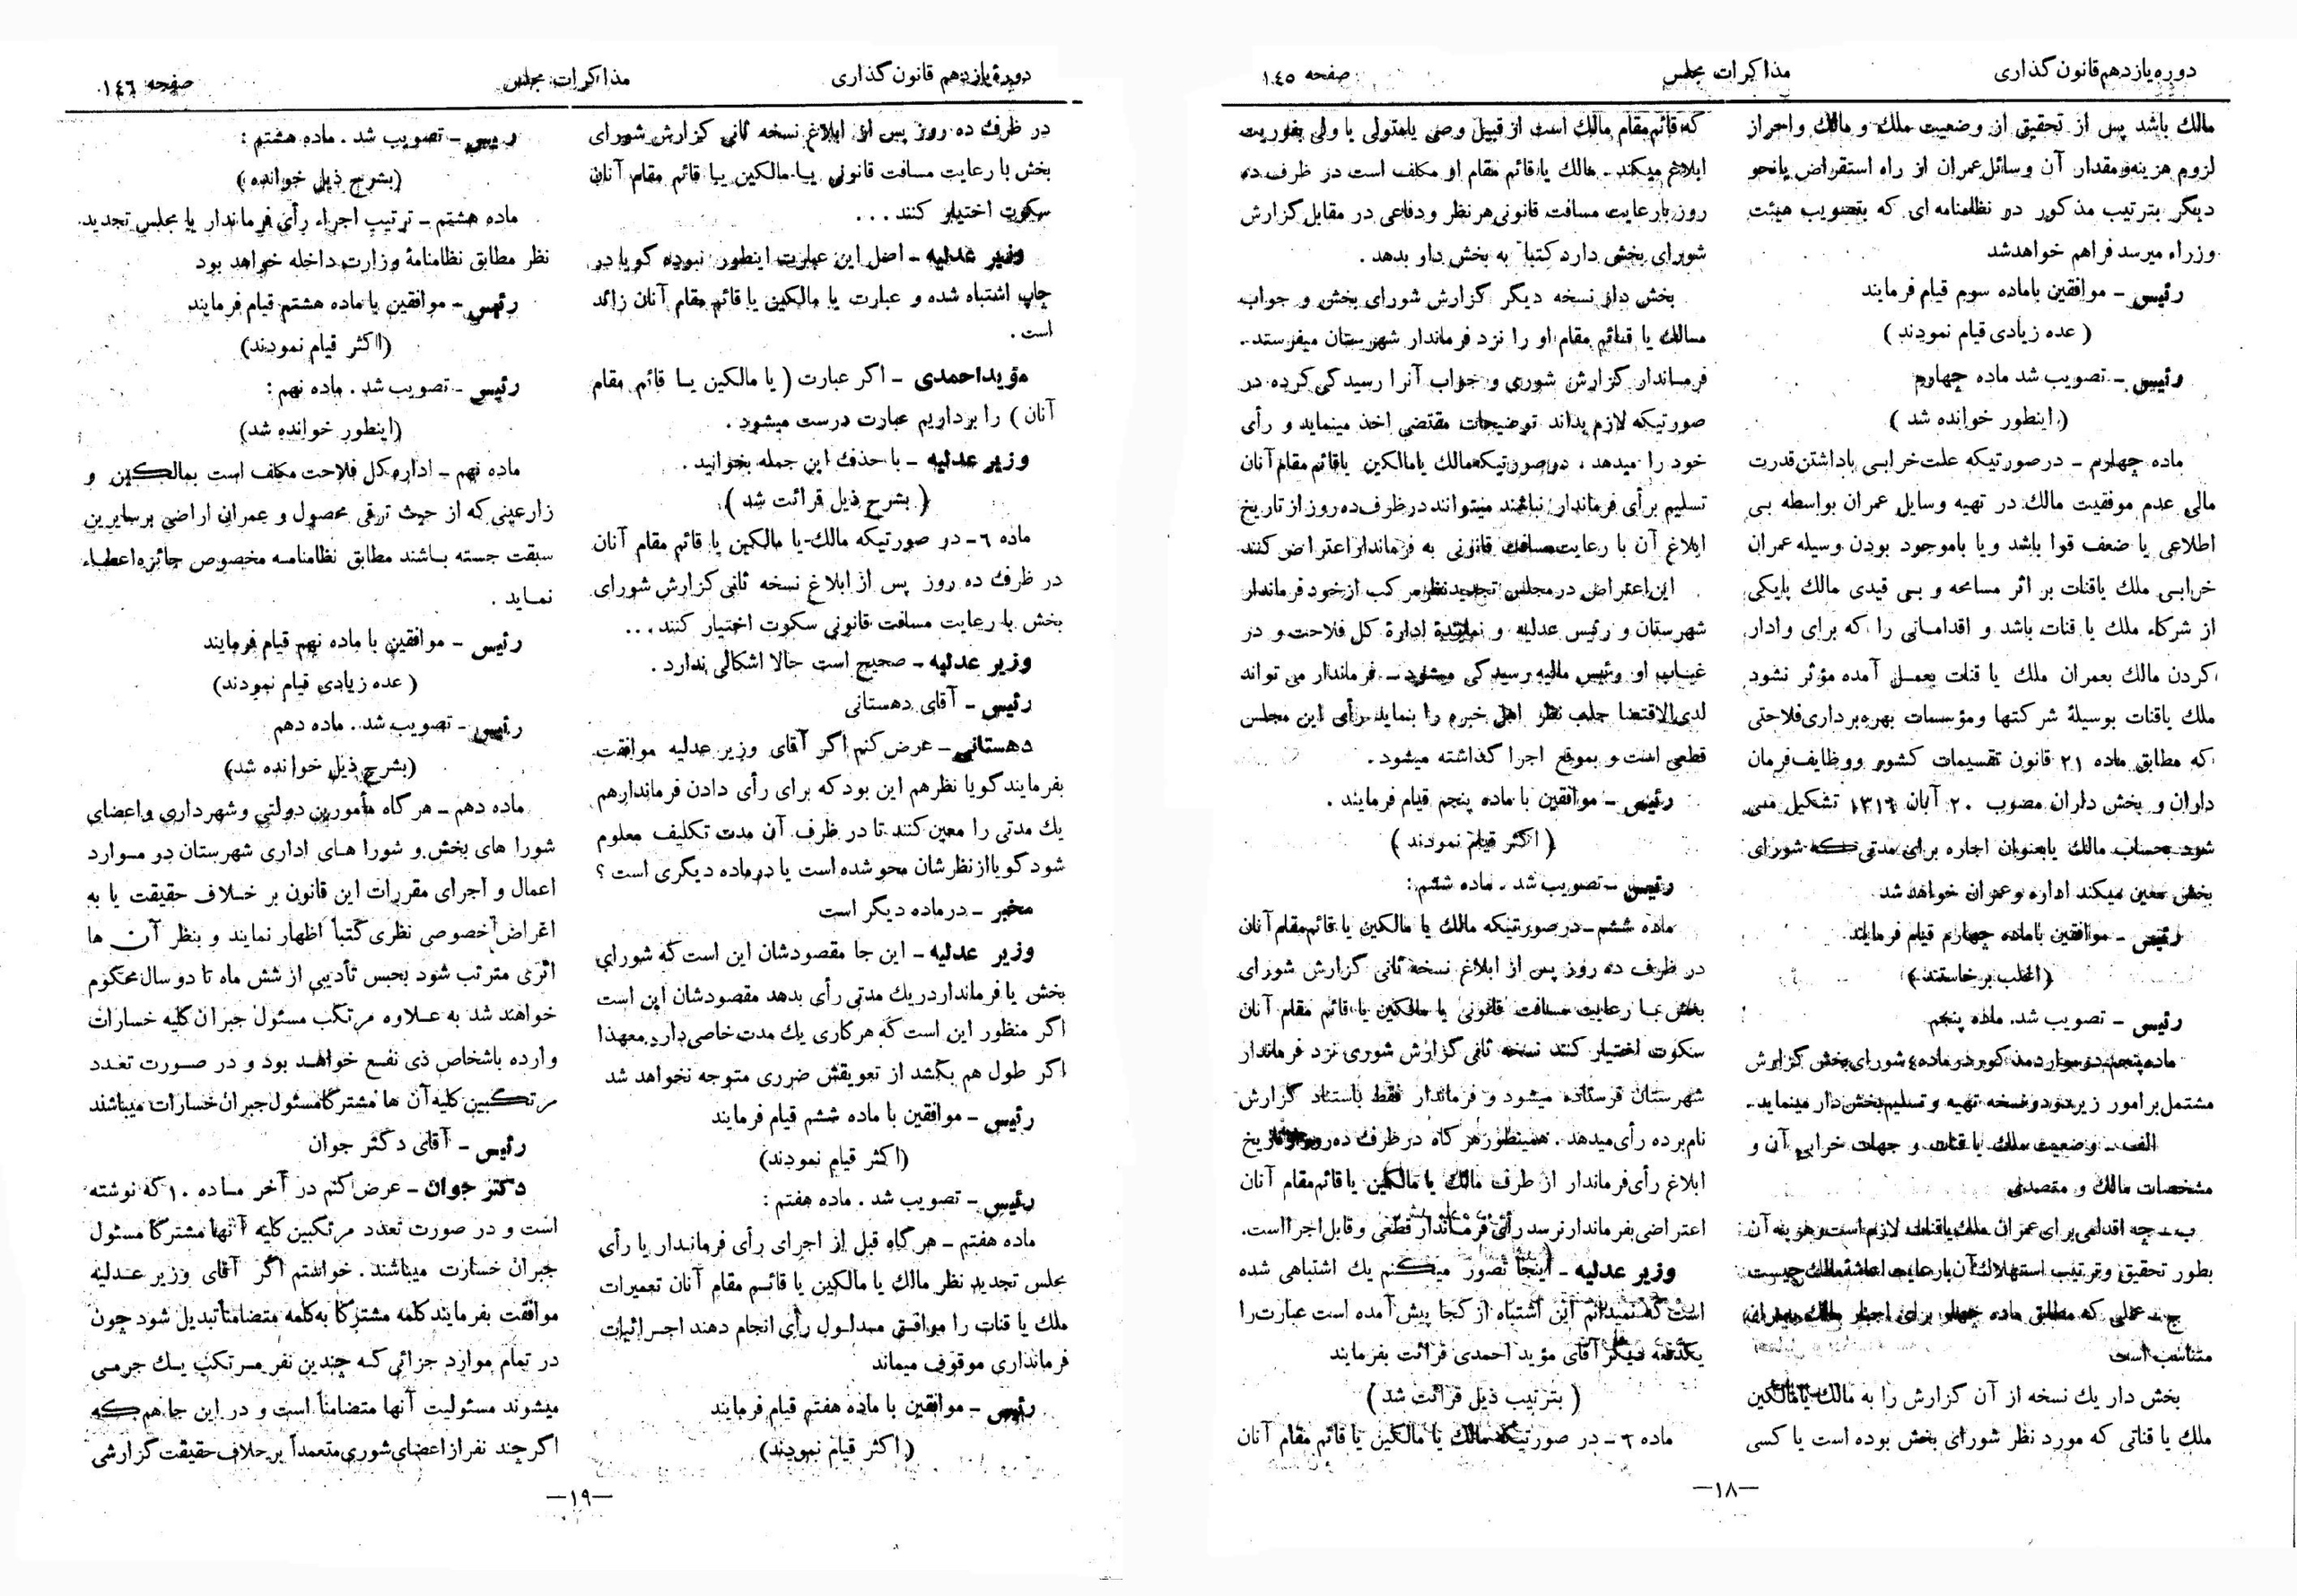 دوره یازدهم قانون گذاری
مذاکرات مجلس
صفحه ۱٤٥
مالك باشد پس از تحقیق از وضعیت ملك و مالك واحراز
لزوم هزینه ومقدار آن وسائل عمران از راه استقراض یا نحو
دیگر بترتیب مذکور در نظامنامه ای که بتصویب هیئت
وزراء میرسد فراهم خواهد شد
رئیس – موافقین با ماده سوم قیام فرمایند
( عده زیادی قیام نمودند )
رئیس – تصویب شد ماده چهارم
( اینطور خوانده شد )
ماده چهارم – در صورتیکه علت خرابی با داشتن قدرت
مالی عدم موفقیت مالك در تهیه وسایل عمران بواسطه بی
اطلاعی یا ضعف قوا باشد ویا با موجود بودن وسیله عمران
خرابی ملك یا قنات بر اثر مسامحه و بی قیدی مالك یا یکی
از شرکاء ملك یا قنات باشد و اقداماتی را که برای وادار
کردن مالك بعمران ملك یا قنات بعمل آمده مؤثر نشود
ملك یا قنات بوسیلهٔ شرکتها ومؤسسات بهره برداری فلاحتی
که مطابق ماده ۲۱ قانون تقسیمات کشور ووظایف فرمان
داران و بخش داران مصوب ۲۰ آبان ۱۳۱٦ تشکیل می
شود بحساب مالك یا بعنوان اجاره برای مدتی که شورای
بخش معین میکند اداره وعمران خواهد شد
رئیس – موافقین با ماده چهارم قیام فرمایند.
(اغلب برخاستند)
رئیس – تصویب شد. ماده پنجم
ماده پنجم در موارد مذکور در ماده ٤ شورای بخش گزارش
مشتمل بر امور زیر در دو نسخه تهیه و تسلیم بخش دار مینماید.
الف – وضعیت ملك یا قنات و جهات خرابی آن و
مشخصات مالك و متصدی
ب – چه اقدامی برای عمران ملك یا قنات لازم است وهزینه آن
بطور تحقیق وترتیب استهلاك آن با رعایت اعاشه مالك چیست
ج – عملی که مطابق ماده چهار برای اجبار مالك بعمران
متناسب است
بخش دار یك نسخه از آن گزارش را به مالك یا مالکین
ملك یا قناتی که مورد نظر شورای بخش بوده است یا کسی
که قائم مقام مالك است از قبیل وصی یا متولی یا ولی بفوریت
ابلاغ میکند – مالك یا قائم مقام او مکلف است در ظرف ده
روز با رعایت مسافت قانونی هر نظر ودفاعی در مقابل گزارش
شورای بخش دارد کتباً به بخش دار بدهد .
بخش دار نسخه دیگر گزارش شورای بخش و جواب
مالك یا قائم مقام او را نزد فرماندار شهرستان میفرستد .
فرماندار گزارش شوری و جواب آنرا رسیدگی کرده در
صورتیکه لازم بداند توضیحات مقتضی اخذ مینماید و رأی
خود را میدهد ، در صورتیکه مالك یا مالکین یا قائم مقام آنان
تسلیم برأی فرماندار نباشند میتوانند در ظرف ده روز از تاریخ
ابلاغ آن با رعایت مسافت قانونی به فرماندار اعتراض کنند
این اعتراض در مجلس تجدید نظر مرکب از خود فرماندار
شهرستان و رئیس عدلیه و نماینده ادارهٔ کل فلاحت و در
غیاب او رئیس مالیه رسیدگی میشود – فرماندار می تواند
لدی الاقتضا جلب نظر اهل خبره را بنماید رأی این مجلس
قطعی است و بموقع اجرا گذاشته میشود .
رئیس – موافقین با ماده پنجم قیام فرمایند .
( اکثر قیام نمودند )
رئیس – تصویب شد . ماده ششم :
ماده ششم – در صورتیکه مالك یا مالکین یا قائم مقام آنان
در ظرف ده روز پس از ابلاغ نسخه ثانی گزارش شورای
بخش با رعایت مسافت قانونی یا مالکین یا قائم مقام آنان
سکوت اختیار کنند نسخه ثانی گزارش شوری نزد فرماندار
شهرستان فرستاده میشود و فرماندار فقط باستناد گزارش
نام برده رأی میدهد . همینطور هر گاه در ظرف ده روز از تاریخ
ابلاغ رأی فرماندار از طرف مالك یا مالکین یا قائم مقام آنان
اعتراضی بفرماندار نرسد رأی فرماندار قطعی وقابل اجرا است.
وزیر عدلیه – اینجا تصور میکنم یك اشتباهی شده
است که نمیدانم این اشتباه از کجا پیش آمده است عبارت را
یکدفعه دیگر آقای مؤید احمدی قرائت بفرمایند
( بترتیب ذیل قرائت شد )
ماده ٦ – در صورتیکه مالك یا مالکین یا قائم مقام آنان
—۱۸—
دورهٔ یازدهم قانون گذاری
مذاکرات مجلس
صفحه ۱٤٦
در ظرف ده روز پس از ابلاغ نسخه ثانی گزارش شورای
بخش با رعایت مسافت قانونی یا مالکین یا قائم مقام آنان
سکوت اختیار کنند ...
وزیر عدلیه – اصل این عبارت اینطور نبوده گویا در
چاپ اشتباه شده و عبارت یا مالکین یا قائم مقام آنان زائد
است .
مؤید احمدی – اگر عبارت ( یا مالکین یا قائم مقام
آنان ) را برداریم عبارت درست میشود .
وزیر عدلیه – با حذف این جمله بخوانید .
( بشرح ذیل قرائت شد )
ماده ٦ – در صورتیکه مالك یا مالکین یا قائم مقام آنان
در ظرف ده روز پس از ابلاغ نسخه ثانی گزارش شورای
بخش با رعایت مسافت قانونی سکوت اختیار کنند ...
وزیر عدلیه – صحیح است حالا اشکالی ندارد .
رئیس – آقای دهستانی
دهستانی – عرض کنم اگر آقای وزیر عدلیه موافقت
بفرمایند گویا نظرهم این بود که برای رأی دادن فرماندارهم
یك مدتی را معین کنند تا در ظرف آن مدت تکلیف معلوم
شود گویا از نظرشان محو شده است یا در ماده دیگری است ؟
مخبر – در ماده دیگر است
وزیر عدلیه – این جا مقصودشان این است که شورای
بخش یا فرماندار در یك مدتی رأی بدهد مقصودشان این است
اگر منظور این است که هر کاری یك مدت خاصی دارد معهذا
اگر طول هم بکشد از تعویقش ضرری متوجه نخواهد شد
رئیس – موافقین با ماده ششم قیام فرمایند
(اکثر قیام نمودند)
رئیس – تصویب شد . ماده هفتم :
ماده هفتم – هر گاه قبل از اجرای رأی فرماندار یا رأی
مجلس تجدید نظر مالك یا مالکین یا قائم مقام آنان تعمیرات
ملك یا قنات را موافق مدلول رأی انجام دهند اجرائیات
فرمانداری موقوف میماند
رئیس – موافقین با ماده هفتم قیام فرمایند
( اکثر قیام نمودند)
رئیس – تصویب شد . ماده هشتم :
(بشرح ذیل خوانده )
ماده هشتم – ترتیب اجراء رأی فرماندار یا مجلس تجدید
نظر مطابق نظامنامهٔ وزارت داخله خواهد بود
رئیس – موافقین با ماده هشتم قیام فرمایند
(اکثر قیام نمودند)
رئیس – تصویب شد . ماده نهم :
(اینطور خوانده شد)
ماده نهم – اداره کل فلاحت مکلف است بمالکین و
زارعینی که از حیث ترقی محصول و عمران اراضی بر سایرین
سبقت جسته باشند مطابق نظامنامه مخصوص جائزه اعطاء
نماید .
رئیس – موافقین با ماده نهم قیام فرمایند
( عده زیادی قیام نمودند)
رئیس – تصویب شد . ماده دهم
(بشرح ذیل خوانده شد)
ماده دهم – هر گاه مأمورین دولتی و شهرداری و اعضای
شورا های بخش و شورا های اداری شهرستان در موارد
اعمال و اجرای مقررات این قانون بر خلاف حقیقت یا به
اغراض خصوصی نظری کتباً اظهار نمایند و بنظر آن ها
اثری مترتب شود بحبس تأدیبی از شش ماه تا دو سال محکوم
خواهند شد به علاوه مرتکب مسئول جبران کلیه خسارات
وارده باشخاص ذی نفع خواهد بود و در صورت تعدد
مرتکبین کلیه آن ها مشترکاً مسئول جبران خسارات میباشند
رئیس – آقای دکتر جوان
دکتر جوان – عرض کنم در آخر ماده ۱۰ که نوشته
است و در صورت تعدد مرتکبین کلیه آنها مشترکاً مسئول
جبران خسارت میباشند . خواستم اگر آقای وزیر عدلیه
موافقت بفرمایند کلمه مشترکاً به کلمه متضامناً تبدیل شود چون
در تمام موارد جزائی که چندین نفر مرتکب یك جرمی
میشوند مسئولیت آنها متضامناً است و در این جا هم که
اگر چند نفر از اعضای شوری متعمداً بر خلاف حقیقت گزارشی
—۱۹—